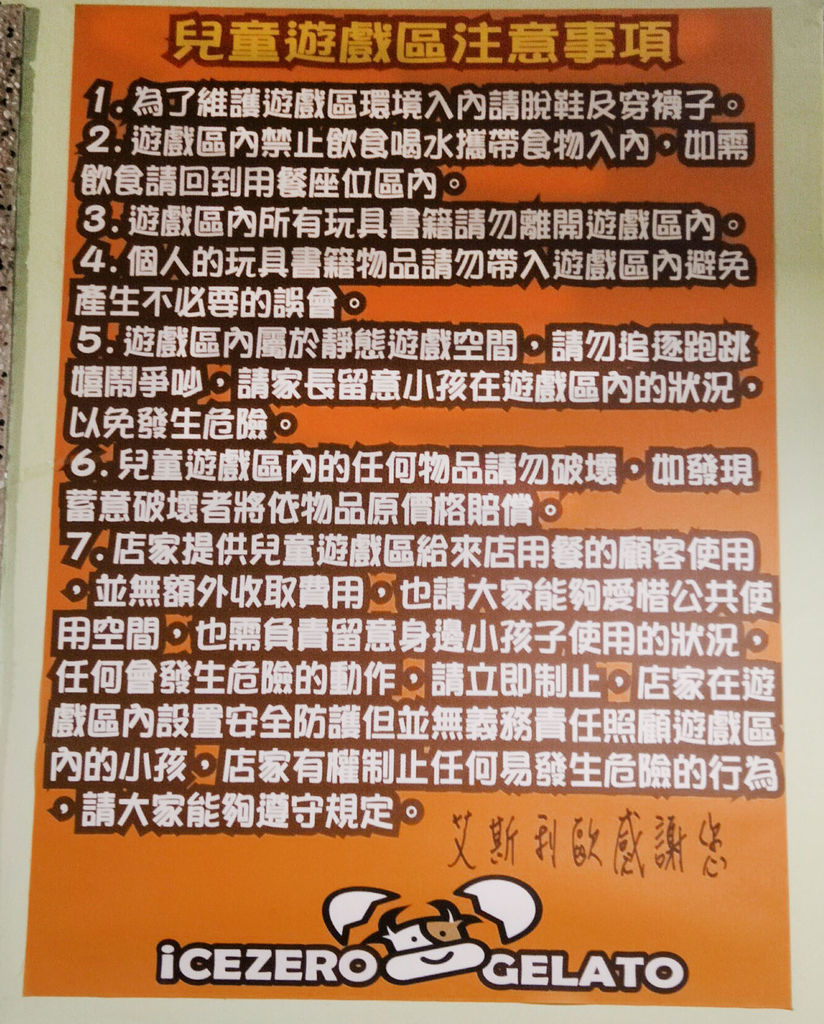 兒童遊戲區注意事項
1.為了維護遊戲區環境入內請脫鞋及穿襪子。
2.遊戲區內禁止飲食喝水攜帶食物入內，如需
飲食請回到用餐座位區內。
3.遊戲區內所有玩具書籍請勿離開遊戲區內。
4.個人的玩具書籍物品請勿帶入遊戲區內避免
產生不必要的誤會。
5.遊戲區內屬於靜態遊戲空間，請勿追逐跑跳
嬉鬧爭吵，請家長留意小孩在遊戲區內的狀況，
以免發生危險。
6.兒童遊戲區內的任何物品請勿破壞，如發現
蓄意破壞者將依物品原價格賠償。
7.店家提供兒童遊戲區給來店用餐的顧客使用
，並無額外收取費用，也請大家能夠愛惜公共使
用空間，也需負責留意身邊小孩子使用的狀況。
任何會發生危險的動作，請立即制止。店家在遊
戲區內設置安全防護但並無義務責任照顧遊戲區
內的小孩，店家有權制止任何易發生危險的行為
，請大家能夠遵守規定。
艾斯利歐感謝您
iCEZERO GELATO